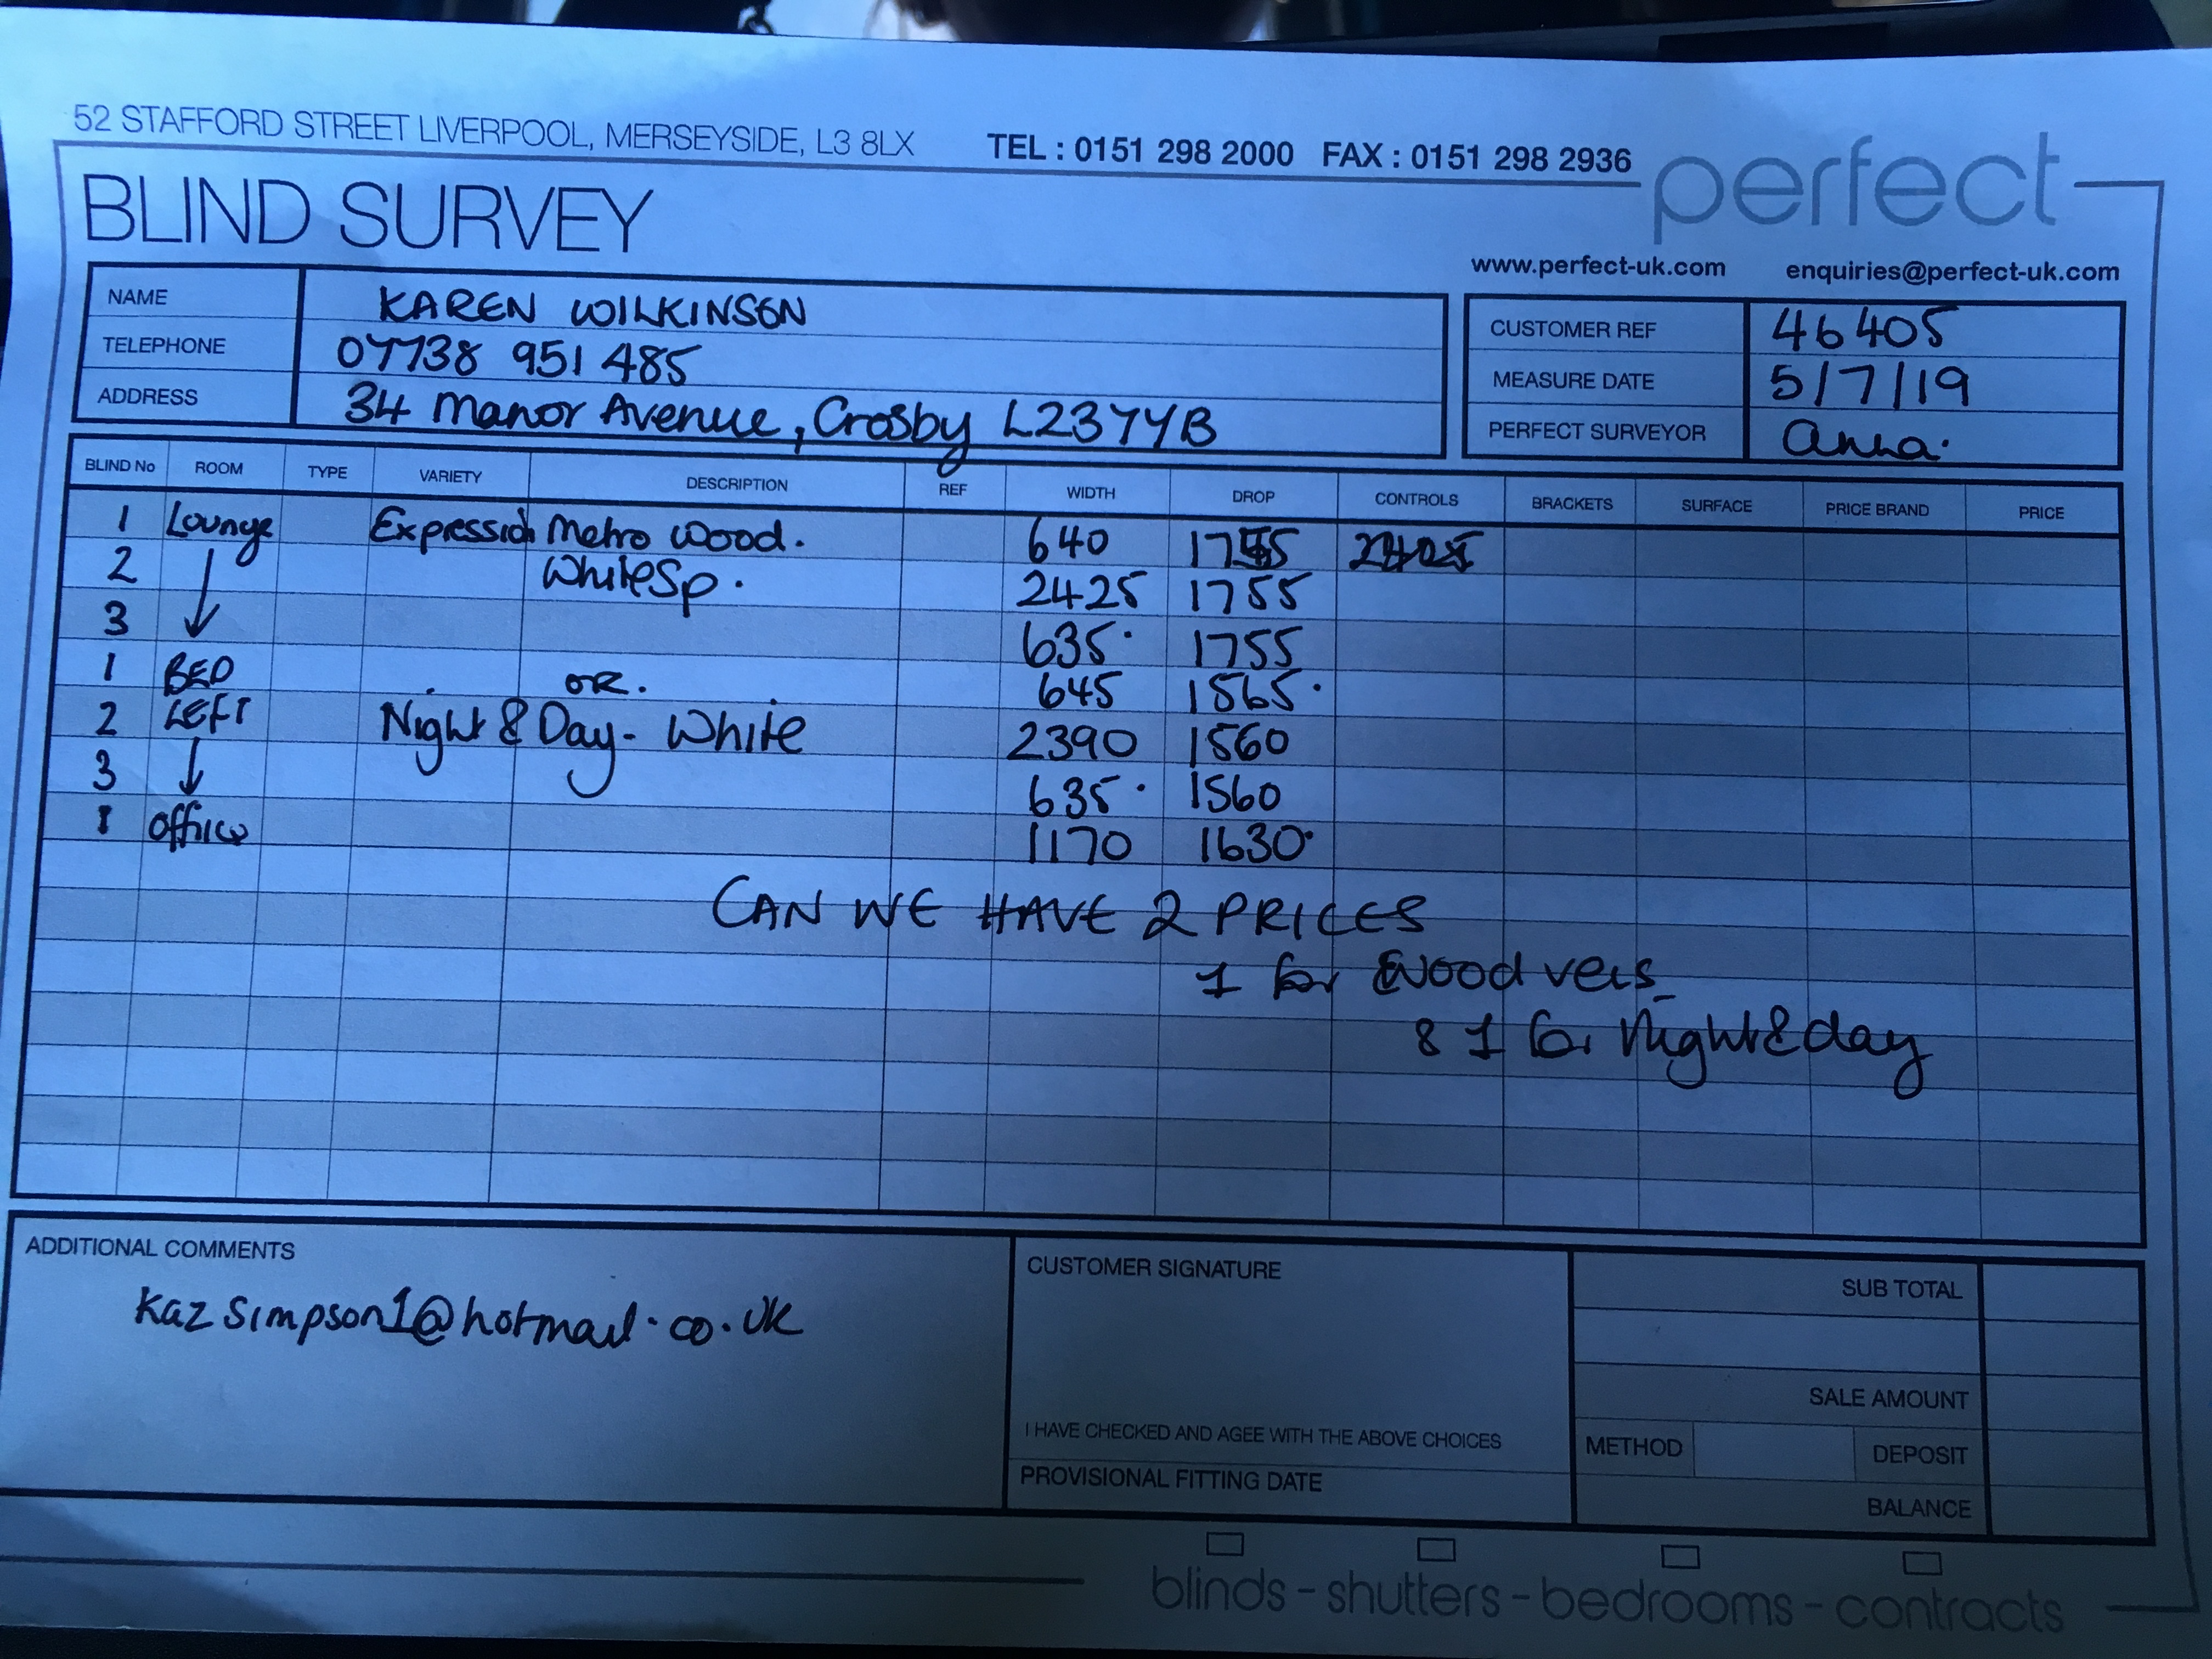 52 STAFFORD STREET LIVERPOOL, MERSEYSIDE, L3 8LX TEL : 0151 298 2000 FAX : 0151 298 2936
perfect
BLIND SURVEY
www.perfect-uk.com enquiries@perfect-uk.com
NAME KAREN WILKINSON
TELEPHONE 07738 951 485
ADDRESS 34 Manor Avenue, Crosby L23 7YB
CUSTOMER REF 46405
MEASURE DATE 5/7/19
PERFECT SURVEYOR Anna.
BLIND No ROOM TYPE VARIETY DESCRIPTION REF WIDTH DROP CONTROLS BRACKETS SURFACE PRICE BRAND PRICE
1 Lounge Expression Metro Wood. 640 1755
2 White Sp. 2425 1755
3 635 1755
1 BED OR. 645 1565
2 LEFT Night & Day - White 2390 1560
3 635 1560
1 Office 1170 1630
CAN WE HAVE 2 PRICES
1 for wood vens
& 1 for Night & day
ADDITIONAL COMMENTS
Kazsimpson1@hotmail.co.uk
CUSTOMER SIGNATURE
I HAVE CHECKED AND AGEE WITH THE ABOVE CHOICES
PROVISIONAL FITTING DATE
SUB TOTAL
SALE AMOUNT
METHOD DEPOSIT
BALANCE
blinds - shutters - bedrooms - contracts